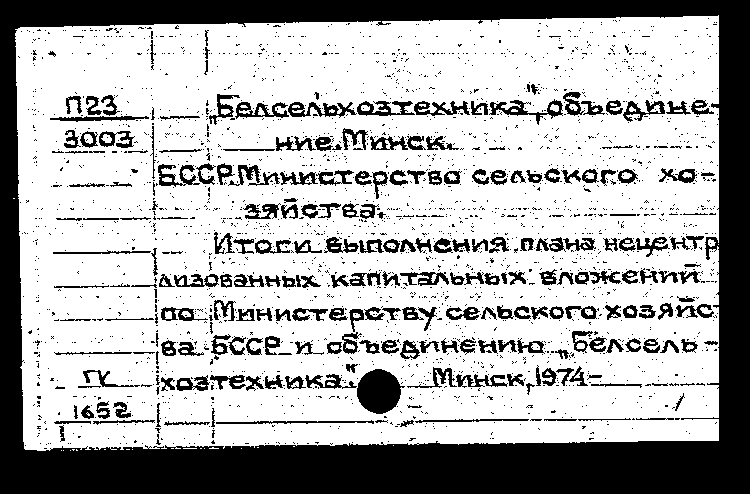 П23 „Белсельхозтехника", объедине-
3003 ние. Минск.
БССР. Министерство сельского хо-
зяйства.
Итоги выполнения плана нецентр
лизованных капитальных вложений
по Министерству сельского хозяйс
ва БССР и объединению „Белсель-
ГК хозтехника". Минск, 1974-
1652 /